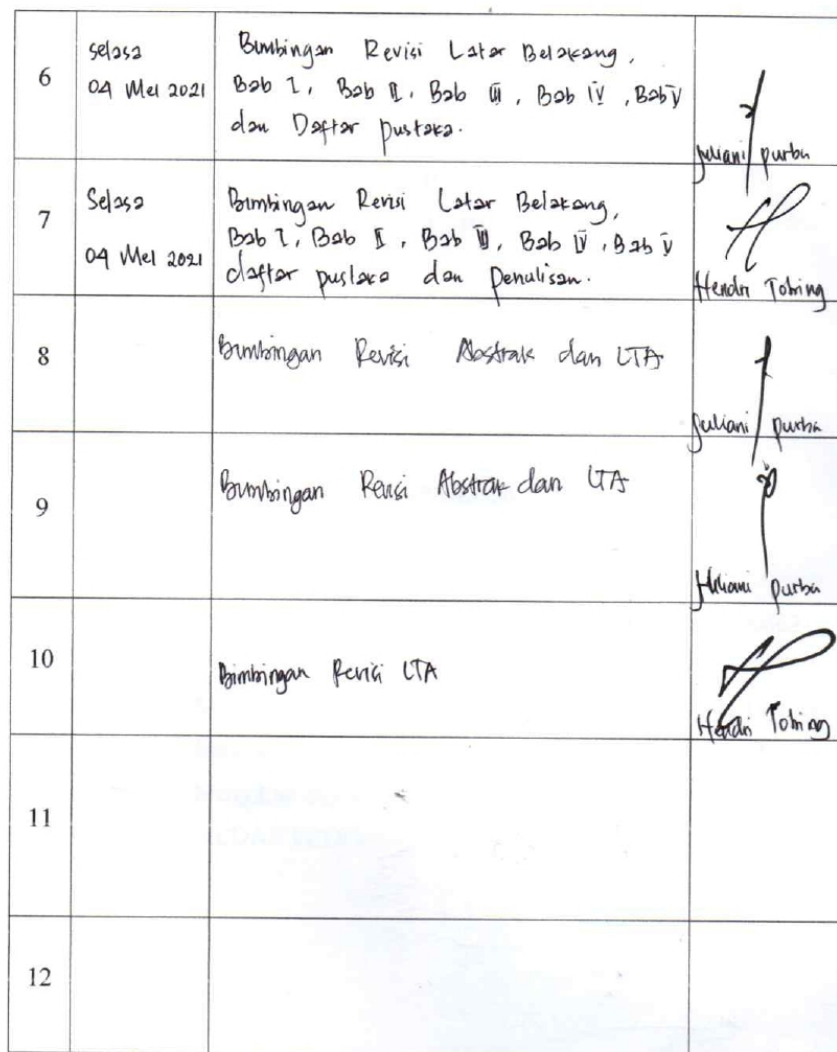 6
Selasa
04 Mei 2021
Bimbingan Revisi Latar Belakang,
Bab I, Bab II, Bab III, Bab IV, Bab V
dan Daftar pustaka.
Juliani purba
7
Selasa
04 Mei 2021
Bimbingan Revisi Latar Belakang,
Bab I, Bab II, Bab III, Bab IV, Bab V
daftar pustaka dan penulisan.
Hendri Tobing
8
Bimbingan Revisi Abstrak dan LTA
Juliani purba
9
Bimbingan Revisi Abstrak dan LTA
Juliani purba
10
Bimbingan Revisi LTA
Hendri Tobing
11
12